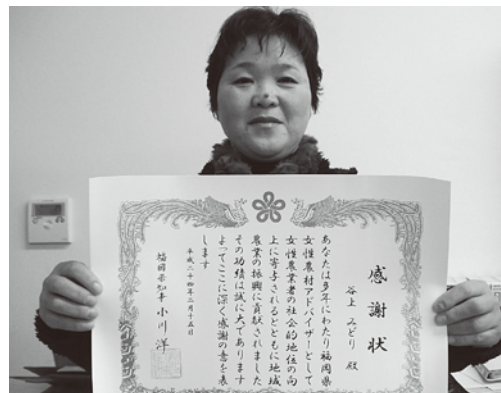 感謝状
谷上 みどり 殿
あなたは多年にわたり福岡県
女性農村アドバイザーとして
女性農業者の社会的地位の向
上に寄与されるとともに地域
農業の振興に貢献されました
その功績は誠に大であります
よってここに深く感謝の意を表
します
平成二十四年二月十五日
福岡県知事 小川 洋